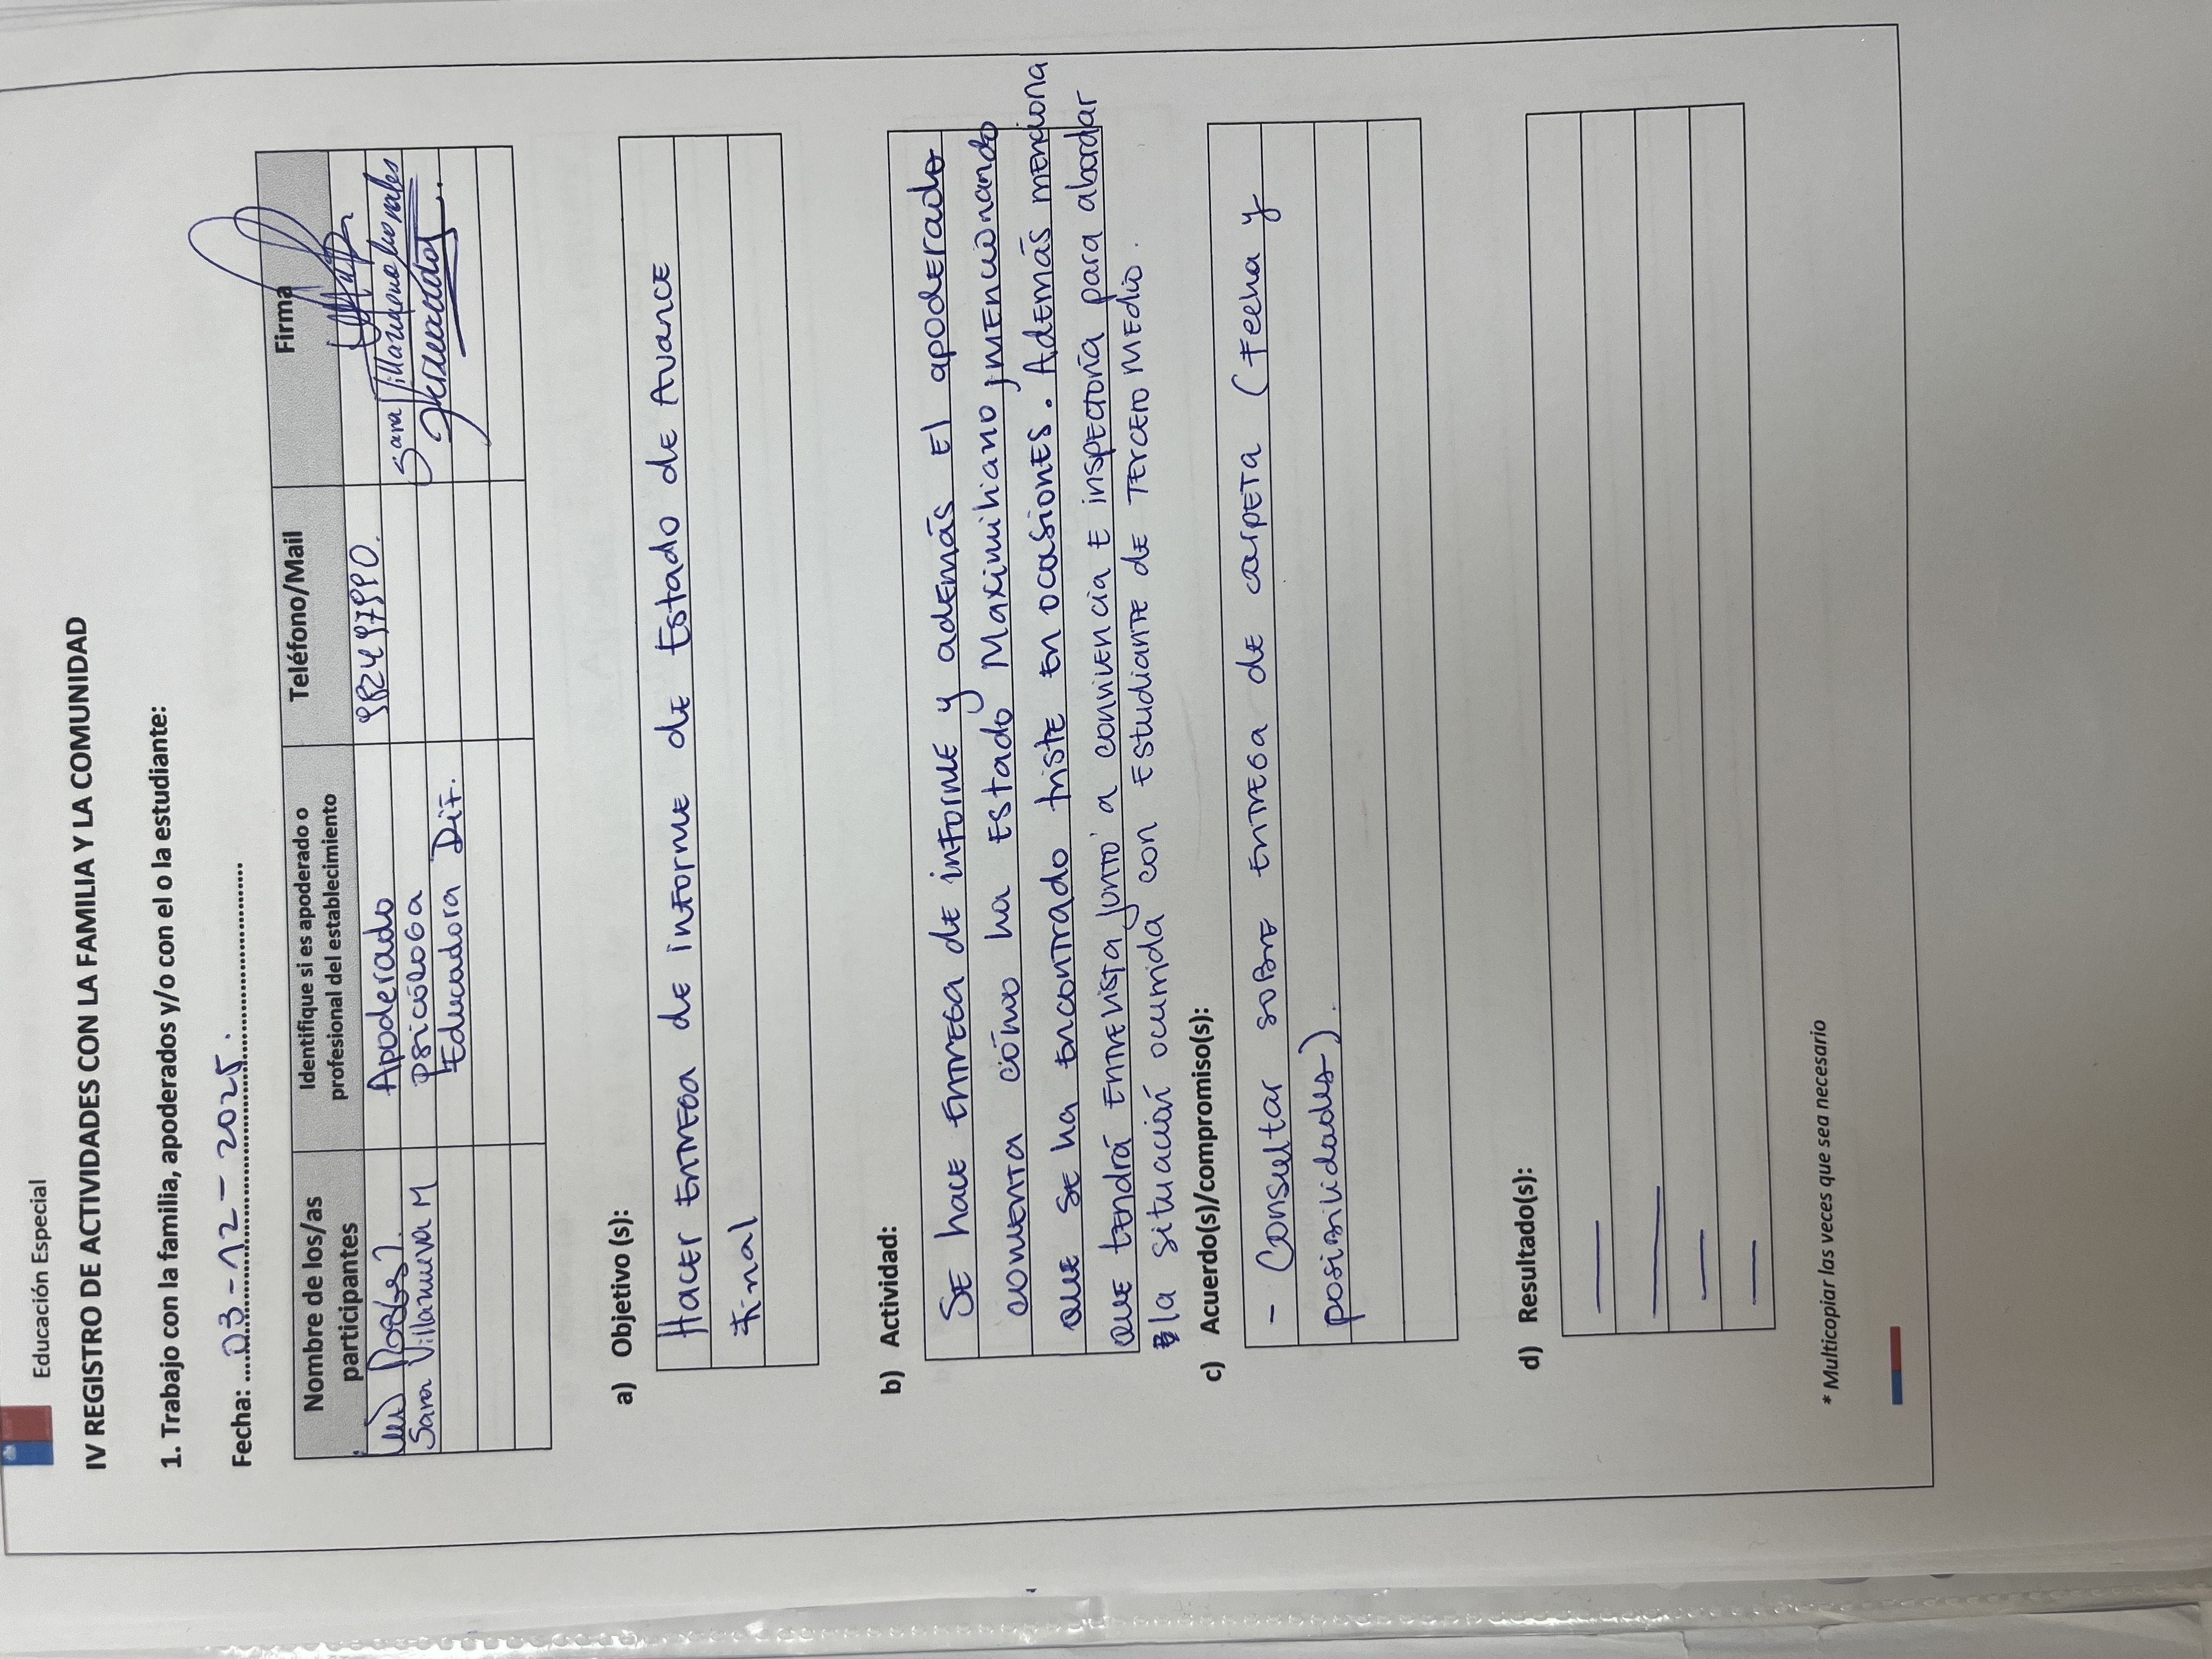 Educación Especial
IV REGISTRO DE ACTIVIDADES CON LA FAMILIA Y LA COMUNIDAD
1. Trabajo con la familia, apoderados y/o con el o la estudiante:
Fecha: 03-12-2025.
Nombre de los/as participantes
Identifique si es apoderado o profesional del establecimiento
Teléfono/Mail
Firma
Apoderado
Sara Villanueva M
psicóloga
Sara Villanueva Morales
Educadora Dif.
a) Objetivo (s):
Hacer entrega de informe de Estado de Avance
Final
b) Actividad:
Se hace entrega de informe y además el apoderado
comenta cómo ha estado Maximiliano, mencionando
que se ha encontrado triste en ocasiones. Además menciona
que tendrá entrevista junto a convivencia e inspectoría para abordar
la situación ocurrida con estudiante de Tercero Medio.
c) Acuerdo(s)/compromiso(s):
- Consultar sobre entrega de carpeta (Fecha y
posibilidades).
d) Resultado(s):
* Multicopiar las veces que sea necesario